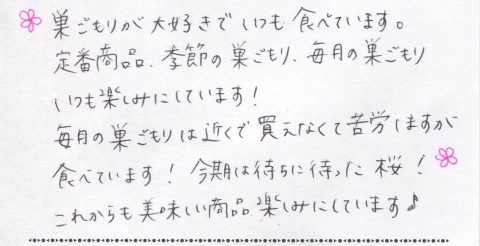 巣ごもりが大好きでいつも食べています。
定番商品、季節の巣ごもり、毎月の巣ごもり
いつも楽しみにしています!
毎月の巣ごもりは近くで買えなくて苦労しますが
食べています! 今期は待ちに待った桜!
これからも美味しい商品楽しみにしています♪